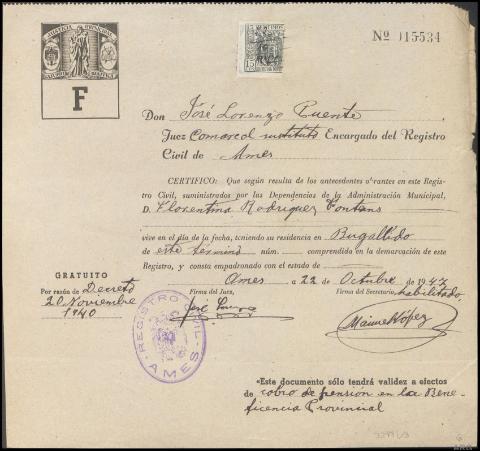 JUSTICIA MUNICIPAL
F
Nº 015534
15
Don José Lorenzo Puente
Juez Comarcal sustituto Encargado del Registro
Civil de Ames
CERTIFICO: Que según resulta de los antecedentes obrantes en este Regis-
tro Civil, suministrados por las Dependencias de la Administración Municipal,
D. Florentina Rodriguez Tontans
vive en el día de la fecha, teniendo su residencia en Bugallido
de este término núm. comprendida en la demarcación de este
Registro, y consta empadronado con el estado de
Ames a 22 de Octubre de 1947
GRATUITO
Por razón de Decreto
20 Noviembre
1940
Firma del Juez,
José
Firma del Secretario, habilitado
López
REGISTRO CIVIL
AMES
"Este documento sólo tendrá validez a efectos
de cobro de pensión en la Bene-
ficencia Provincial